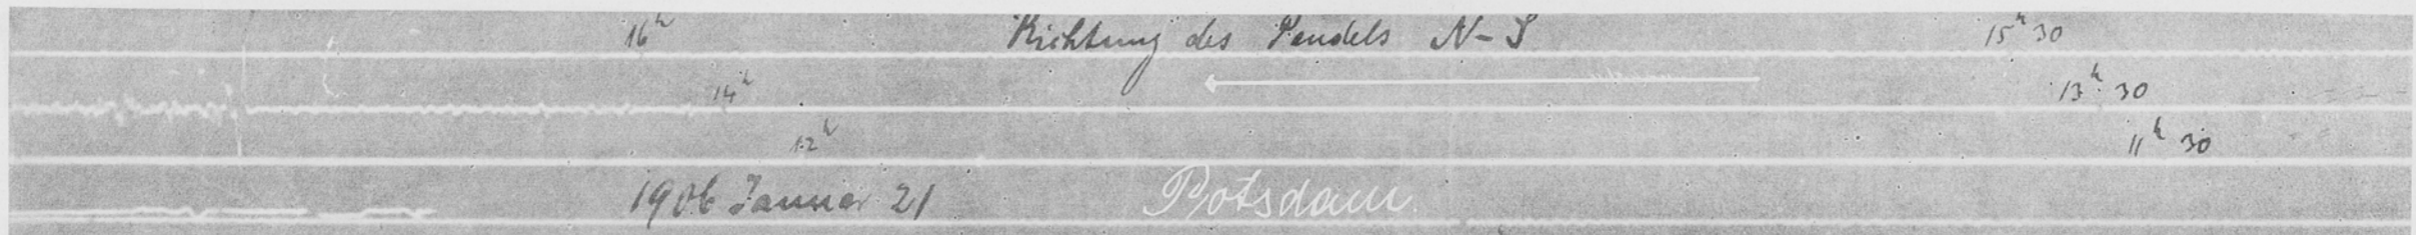 16h Richtung des Pendels N-S 15h 30
14h 13h 30
12h 11h 30
1906 Januar 21 Potsdam